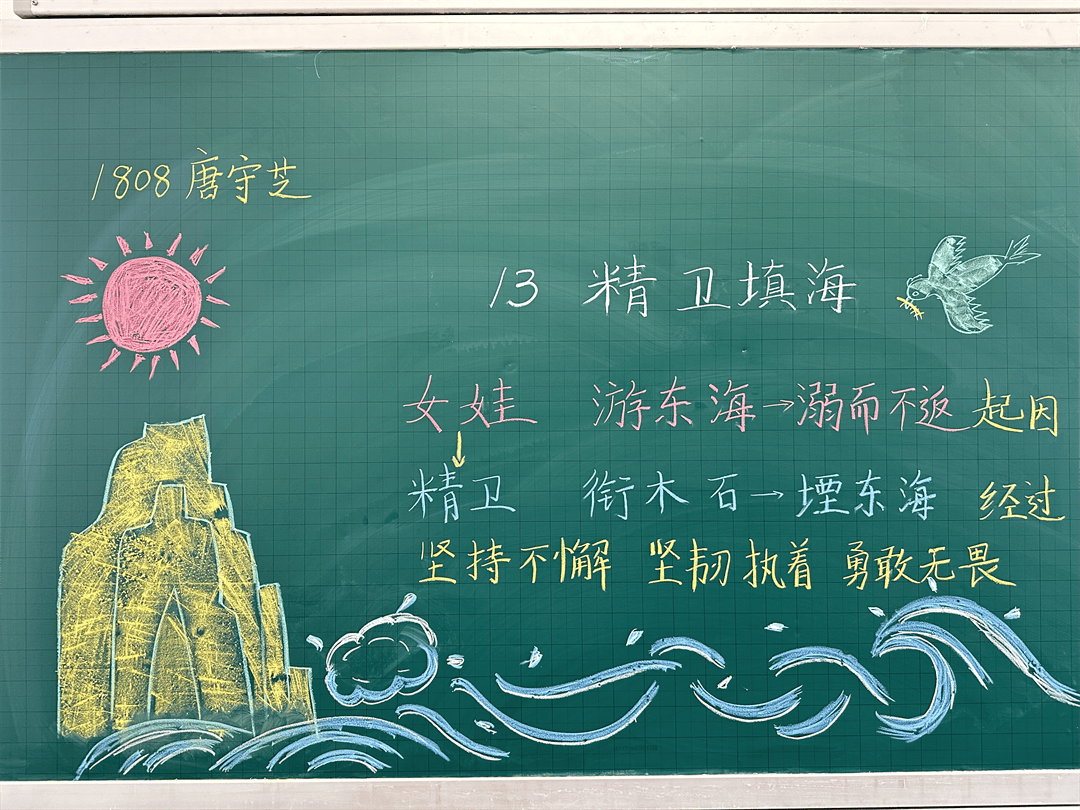 1808 唐守芝
13 精卫填海
女娃 游东海→溺而不返 起因
精卫 衔木石→堙东海 经过
坚持不懈 坚韧执着 勇敢无畏